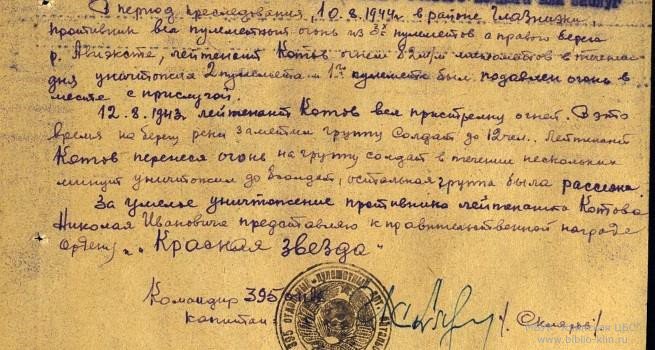 В период преследования, 10.8.1944г. в районе Глазнику,
противник вел пулеметный огонь из 3х пулеметов с правого берега
р. Айвексте, лейтенант Котов огнем 82 м/м минометов в течение
дня уничтожил 2 пулемета и 1го пулемета был подавлен огонь в
месте с прислугой.
12.8.1943г. лейтенант Котов вел пристрелку огней. В это
время на берегу реки заметил группу солдат до 12 чел. Лейтенант
Котов перенеся огонь на группу солдат в течении нескольких
минут уничтожил до 8 солдат, остальная группа была рассеяна.
За умелое уничтожение противника лейтенанта Котова
Николая Ивановича представляю к правительственной награде
Ордену "Красная звезда"
Командир 395
капитан
395 ОТДЕЛЬНЫЙ ПУЛЕМЕТНЫЙ АРТ.
ЦБС
www.biblio-klin.ru